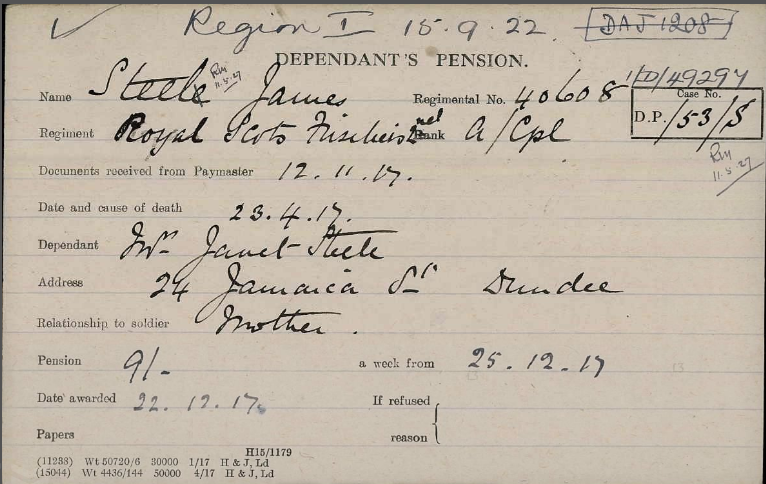 Region I 15.9.22 DAJ 1208
DEPENDANT'S PENSION.
Name Steele James Regimental No. 40608
RM 11.5.27
1/D/49297
Case No.
D.P. /53/S
Regiment Royal Scots Fusiliers 2nd Rank A/Cpl
RM 11.5.27
Documents received from Paymaster 12.11.17.
Date and cause of death 23.4.17.
Dependant Mrs Janet Steele
Address 24 Jamaica St Dundee
Relationship to soldier Mother.
Pension 9/- a week from 25.12.17
Date awarded 22.12.17. If refused
Papers reason
H15/1179
(11238) Wt 50720/6 30000 1/17 H & J, Ld
(15044) Wt 4436/144 50000 4/17 H & J, Ld